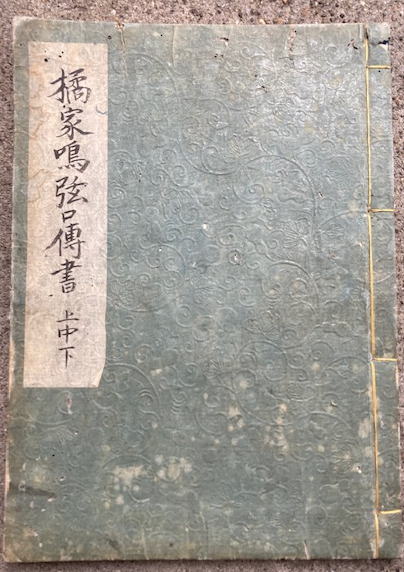 橘家鳴弦口傳書 上中下